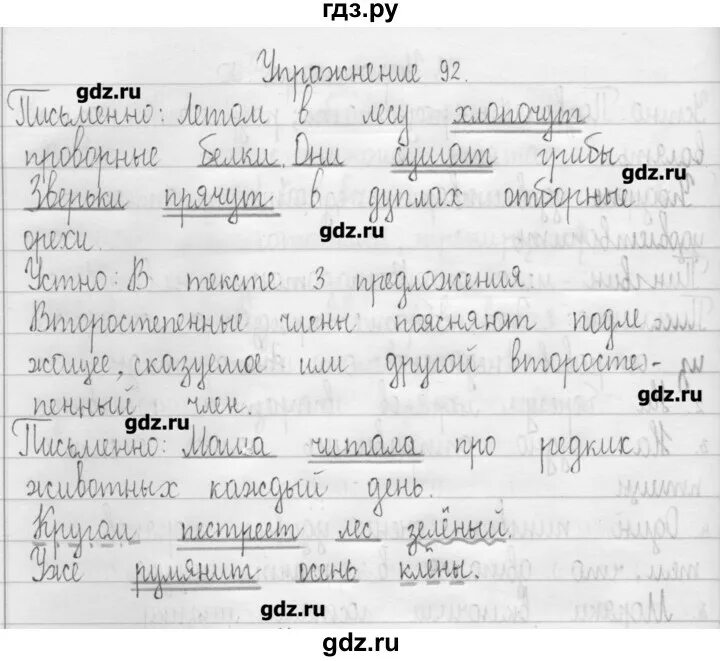 гдз.ру
Упражнение 92.
gdz.ru
Письменно: Летом в лесу хлопочут
проворные белки. Они сушат грибы.
gdz.ru
Зверьки прячут в дуплах отборные
gdz.ru
орехи
Устно: В тексте 3 предложения.
Второстепенные члены поясняют подле
жащее, сказуемое или другой второсте-
gdz.ru
пенный член.
gdz.ru
Письменно: Маша читала про редких
животных каждый день.
Кругом пестреет лес зелёный.
Уже румянит осень клёны.
gdz.ru
gdz.ru